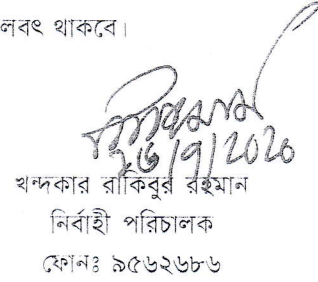 লবৎ থাকবে।
২৬/৭/2020
খন্দকার রাকিবুর রহমান
নির্বাহী পরিচালক
ফোনঃ ৯৫৬২৬৮৬